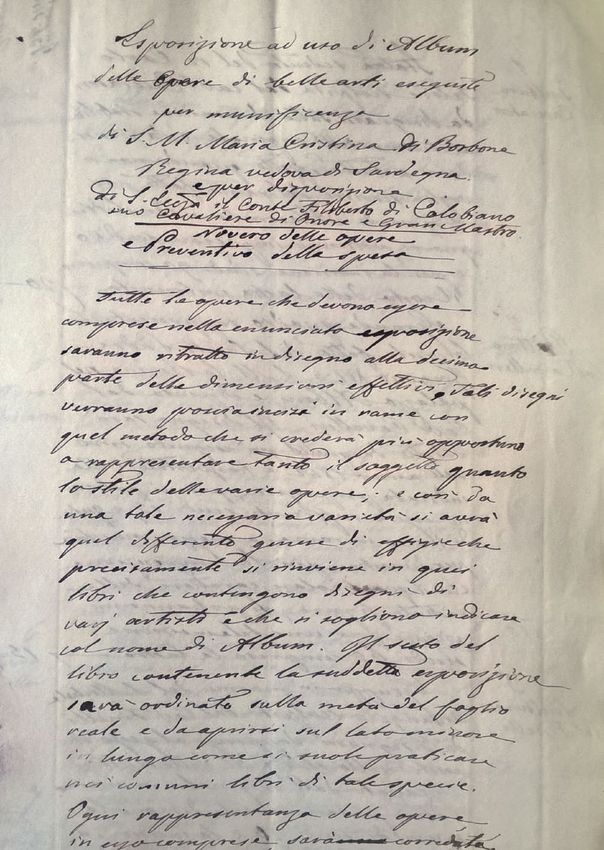 Esposizione ad uso di Album
delle Opere di belle arti eseguite
per munificenza
di S. M. Maria Cristina di Borbone
Regina vedova di Sardegna
e per disposizione
di S. Ecza il Conte Filiberto di Colobiano
suo Cavaliere di Onore e Gran Mastro.
Novero delle opere
e Preventivo della spesa
Tutte le opere che devono essere
comprese nella enunciata esposizione
saranno ritratte in disegno alla decima
parte delle dimensioni effettive. Tali disegni
verranno poscia incisi in rame con
quel metodo che si crederà più opportuno
a rappresentare tanto il soggetto quanto
lo stile delle varie opere; e così da
una tale necessaria varietà si avrà
quel differente genere di effigie che
precisamente si rinviene in quei
libri che contengono disegni di
varj artisti e che si sogliono indicare
col nome di Album. Il sesto del
libro contenente la suddetta esposizione
sarà ordinato sulla metà del foglio
reale e da aprirsi sul lato minore
in lungo come si suole praticare
nei comuni libri di tale specie.
Ogni rappresentanza delle opere
in esso comprese sarà corredata